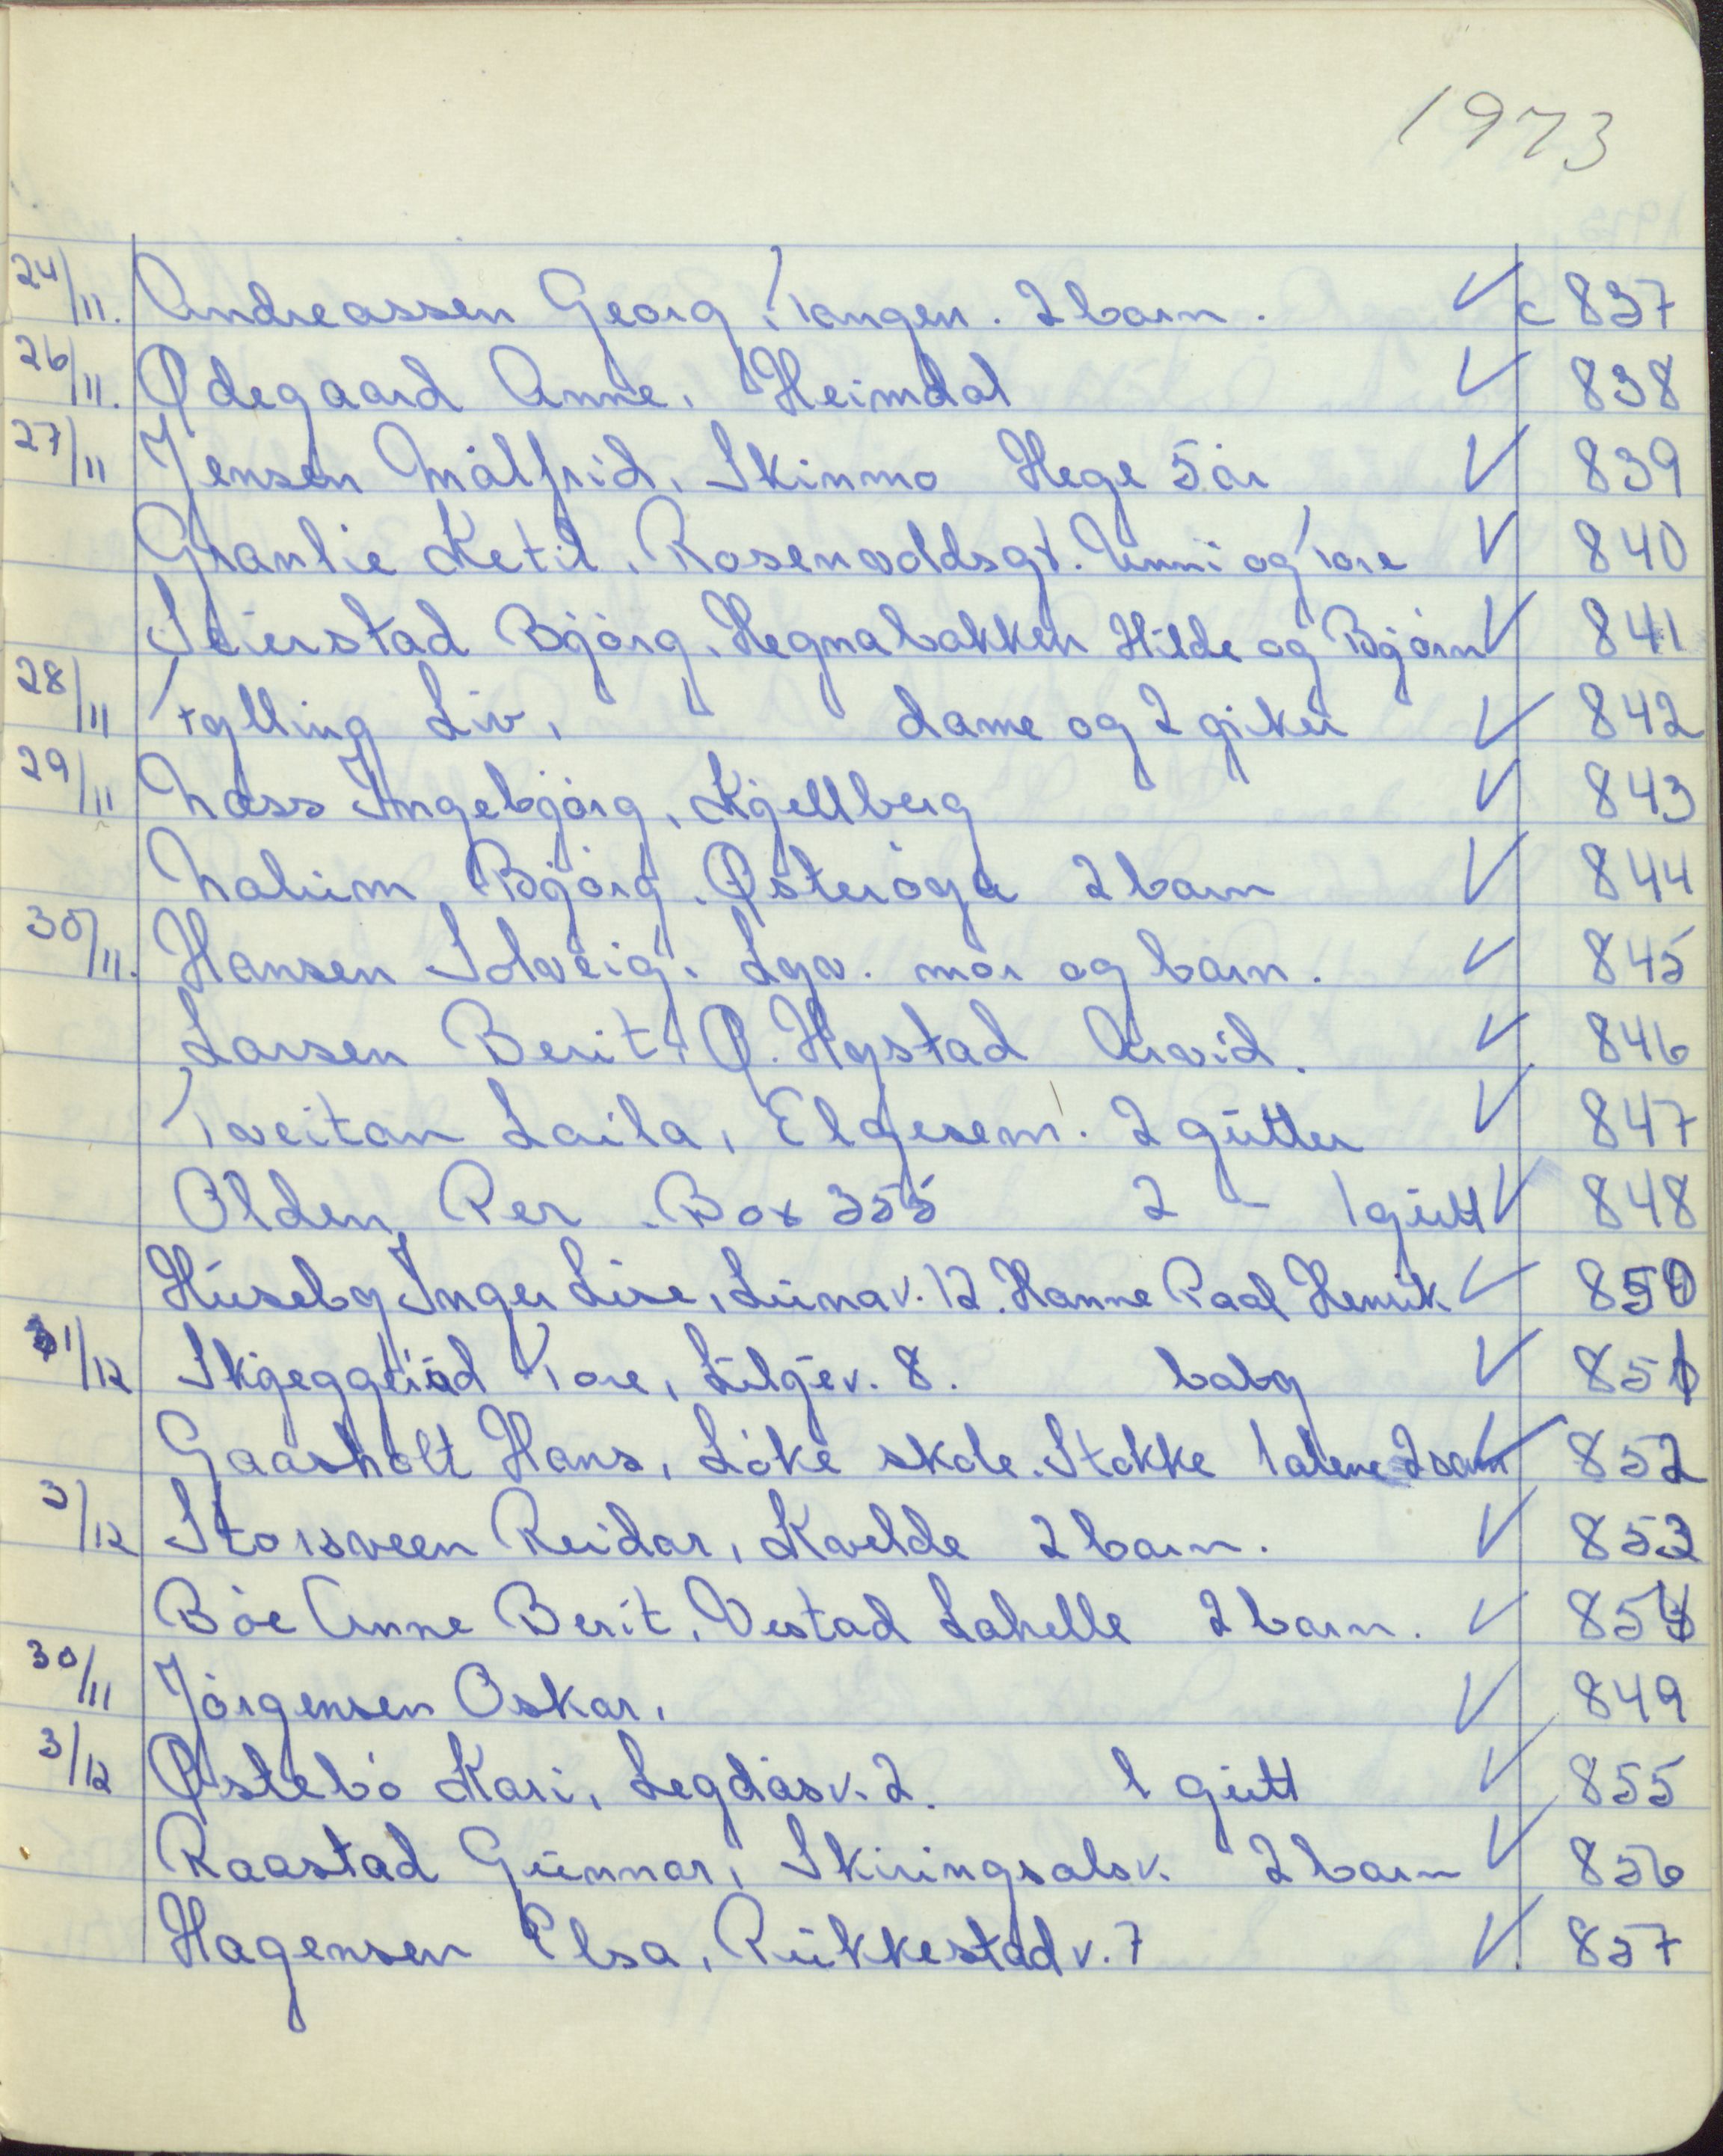 1973
24/11. Andreassen Georg, Tangen. 2 barn. ✓ c 837
26/11. Ødegaard Anne, Heimdal ✓ 838
27/11 Jensen Målfrid, Skinmo Hege 5 år ✓ 839
Granlie Ketil, Rosenvoldsgt. Unni og Tore ✓ 840
Seierstad Bjørg, Hegnabakken Hilde og Bjørn ✓ 841
28/11 Tylling Liv, " dame og 2 piker ✓ 842
29/11 Næss Ingebjørg, Kjellberg ✓ 843
Nalum Bjørg, Østerøya 2 barn ✓ 844
30/11. Hansen Solveig, Lyv. mor og barn. ✓ 845
Larsen Berit, Ø. Hystad Arvid. ✓ 846
Tveitan Laila, Elgesem. 2 gutter ✓ 847
Olden Per, Box 355 2 - 1 gutt ✓ 848
Huseby Inger Lise, Lunav. 12. Hanne Paal Henrik ✓ 850
1/12 Skjeggerud Tore, Liljev. 8. baby ✓ 851
Gaasholt Hans, Løke skole, Stokke 1 alene 2 sam ✓ 852
3/12 Storsveen Reidar, Kvelde 2 barn. ✓ 853
Bøe Anne Berit, Vestad Lahelle 2 barn. ✓ 854
30/11 Jørgensen Oskar, ✓ 849
3/12 Østebø Kari, Legdåsv. 2. 1 gutt ✓ 855
Raastad Gunnar, Skiringsalsv. 2 barn ✓ 856
Hagensen Elsa, Rukkestadv. 7 ✓ 857